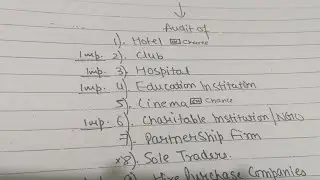 Audit of
1). Hotel Chance
Imp. 2). Club
Imp. 3). Hospital
Imp. 4). Education Institution
5). Cinema Chance
Imp. 6). Charitable Institution/NGO
7). Partnership Firm
*8). Sole Traders.
9). Hire Purchase Companies